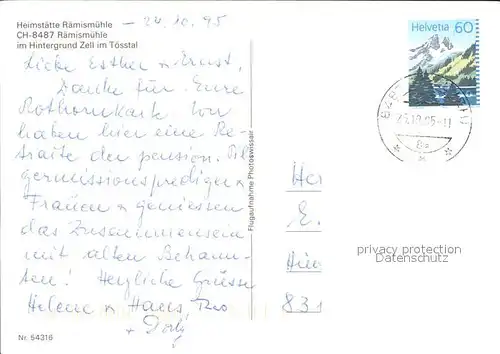 Heimstätte Rämismühle
CH-8487 Rämismühle
im Hintergrund Zell im Tösstal
24.10.95
Liebe Esther & Ernst,
Danke für Eure
Rothornkarte. Wir
haben hier eine Re-
traite der pension. Pil-
germissionsprediger &
Frauen & geniessen
das Zusammensein
mit alten Bekann-
ten! Herzliche Grüsse
Helene & Hans,
Nr. 54316
Flugaufnahme Photoswissair
Helvetia 60
E.
831
privacy protection
Datenschutz